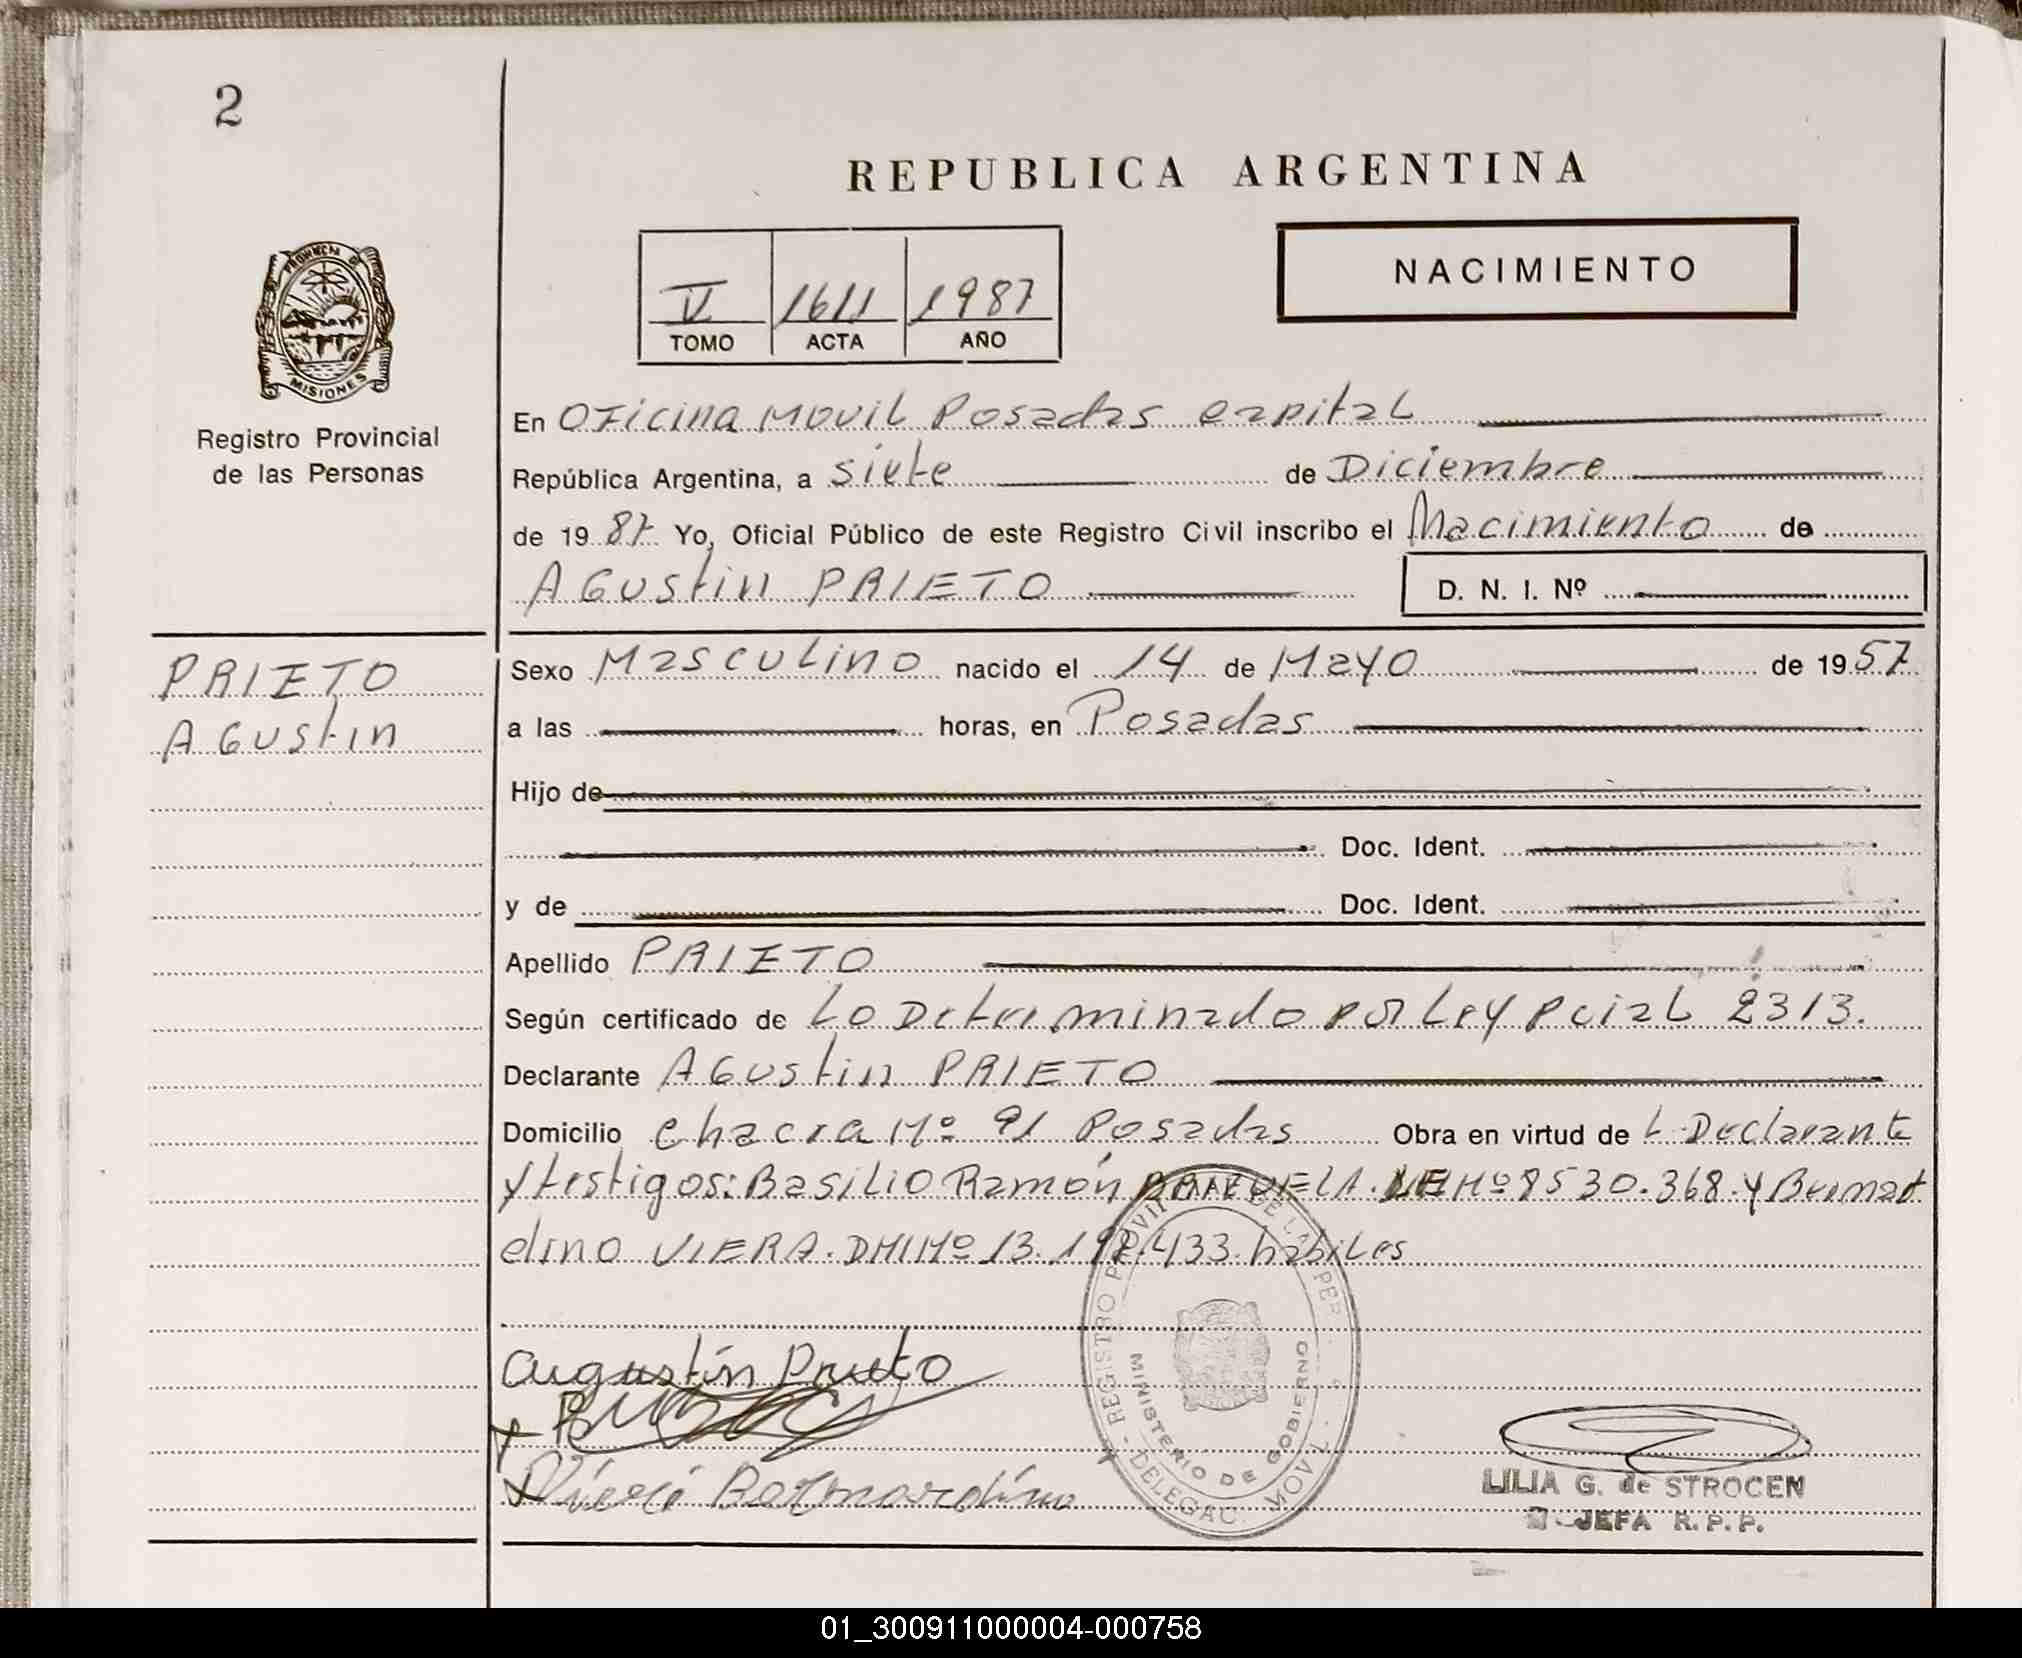 2
REPUBLICA ARGENTINA
NACIMIENTO
V 1611 1987
TOMO ACTA AÑO
PROVINCIA DE
MISIONES
Registro Provincial
de las Personas
En Oficina Movil Posadas capital
República Argentina, a siete de Diciembre
de 1987 Yo, Oficial Público de este Registro Civil inscribo el Nacimiento de
Agustin PRIETO D. N. I. Nº
PRIETO
Agustin
Sexo Masculino nacido el 14 de Mayo de 1957
a las horas, en Posadas
Hijo de
Doc. Ident.
y de Doc. Ident.
Apellido PRIETO
Según certificado de Lo Determinado por Ley pcial 2313.
Declarante Agustin PRIETO
Domicilio chacra Nº 91 Posadas Obra en virtud de L. Declarante
y testigos: Basilio Ramón LE Nº 8530.368. y Bernar
dino VIERA. DNI Nº 13.197.433. habiles
Augustín Prieto
Bernardino
REGISTRO PROVINCIAL DE LAS PER
- DELEGAC. MOVIL -
MINISTERIO DE GOBIERNO
LILIA G. de STROCEN
JEFA R.P.P.
01_300911000004-000758